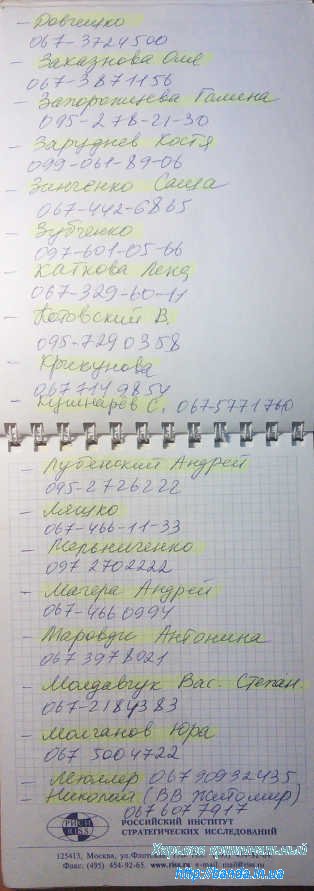 - Довгешко
067-3724500
- Заказнова Оля
067-3871156
- Запорожцева Галина
095-278-21-30
- Заруднев Костя
099-061-89-06
- Зинченко Саша
067-442-6865
- Зубченко
097-601-05-66
- Каткова Лена
067-329-60-11
- Котовский В.
095-7290358
- Крикунова
067 714 9854
- Кушнарёв С. 067-5771760
- Лубенский Андрей
095-2726222
- Ляшко
067-466-11-33
- Мельниченко
097 2702222
- Магера Андрей
067-4660994
- Марводи Антонина
067 3978021
- Молдавчук Вас. Степан.
067-2184383
- Молчанов Юра
067 5004722
- 067 90932435
- Николай (ВВ Житомир)
067 607 7917
РИСИ
RISS
РОССИЙСКИЙ ИНСТИТУТ
СТРАТЕГИЧЕСКИХ ИССЛЕДОВАНИЙ
125413, Москва, ул.
Факс: (495) 454-92-65 www.riss.ru e-mail:
Харьков криминальный